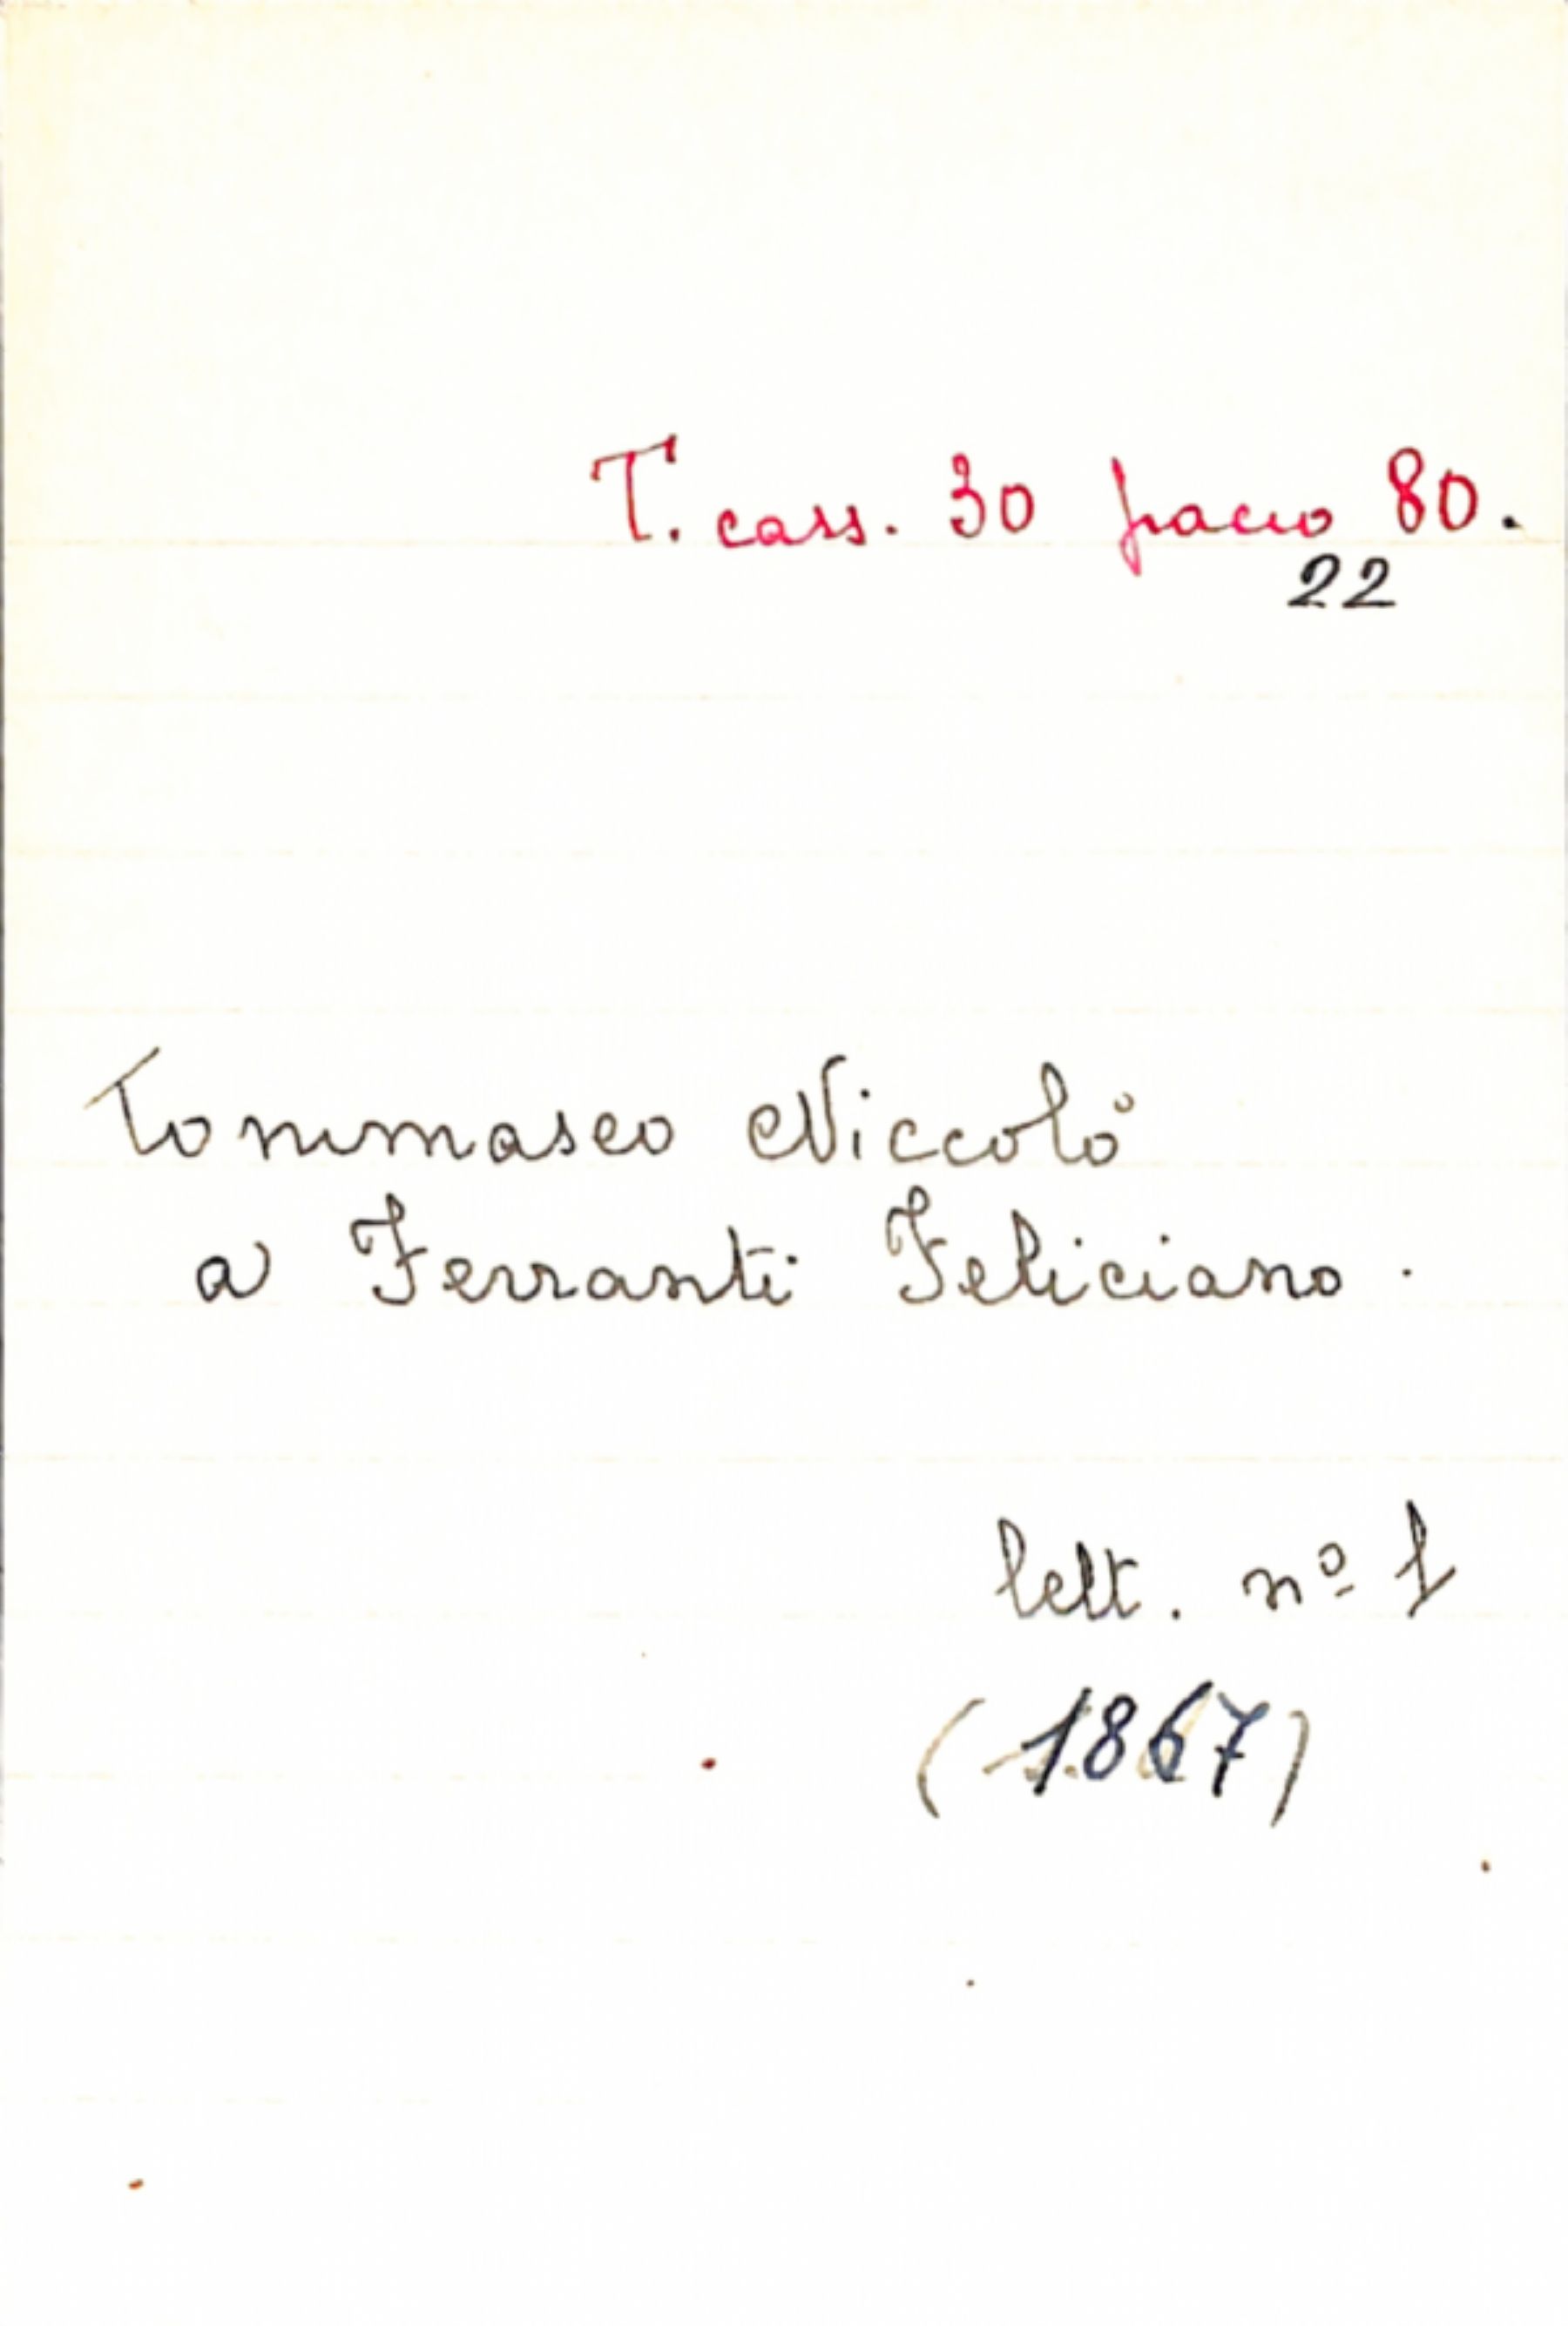 T. cass. 30 pacco 80.
22
Tommaseo Niccolò
a Ferranti Feliciano.
lett. nº 1
(1867)